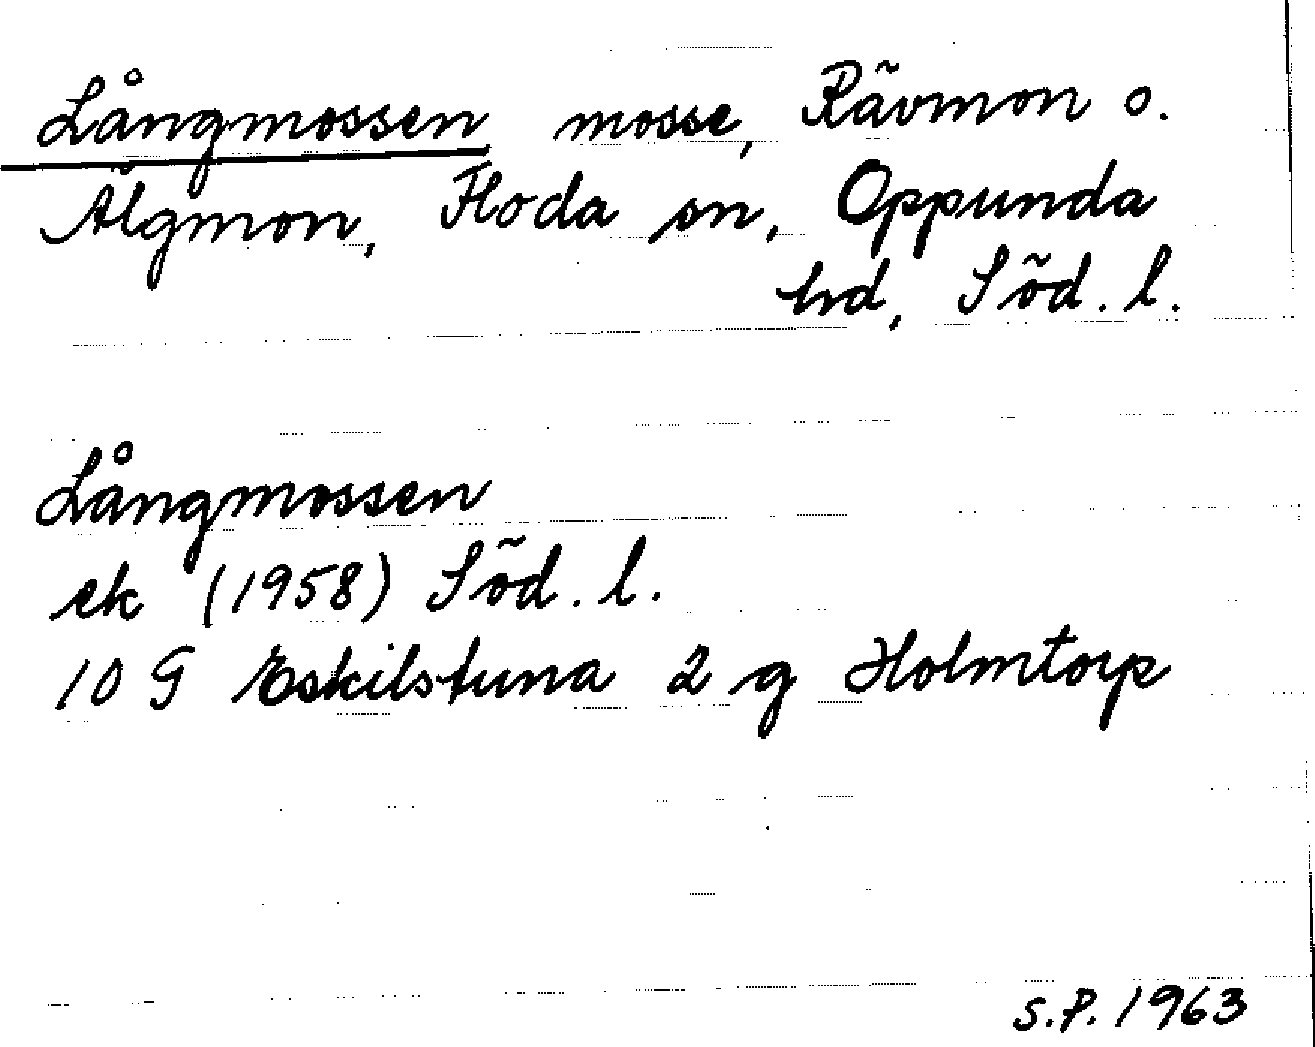 Långmossen mosse, Rävmon o.
Älgmon, Floda sn, Oppunda
hd, Söd. l.
Långmossen
ek (1958) Söd. l.
10 G Eskilstuna 2 g Holmtorp
S.P. 1963